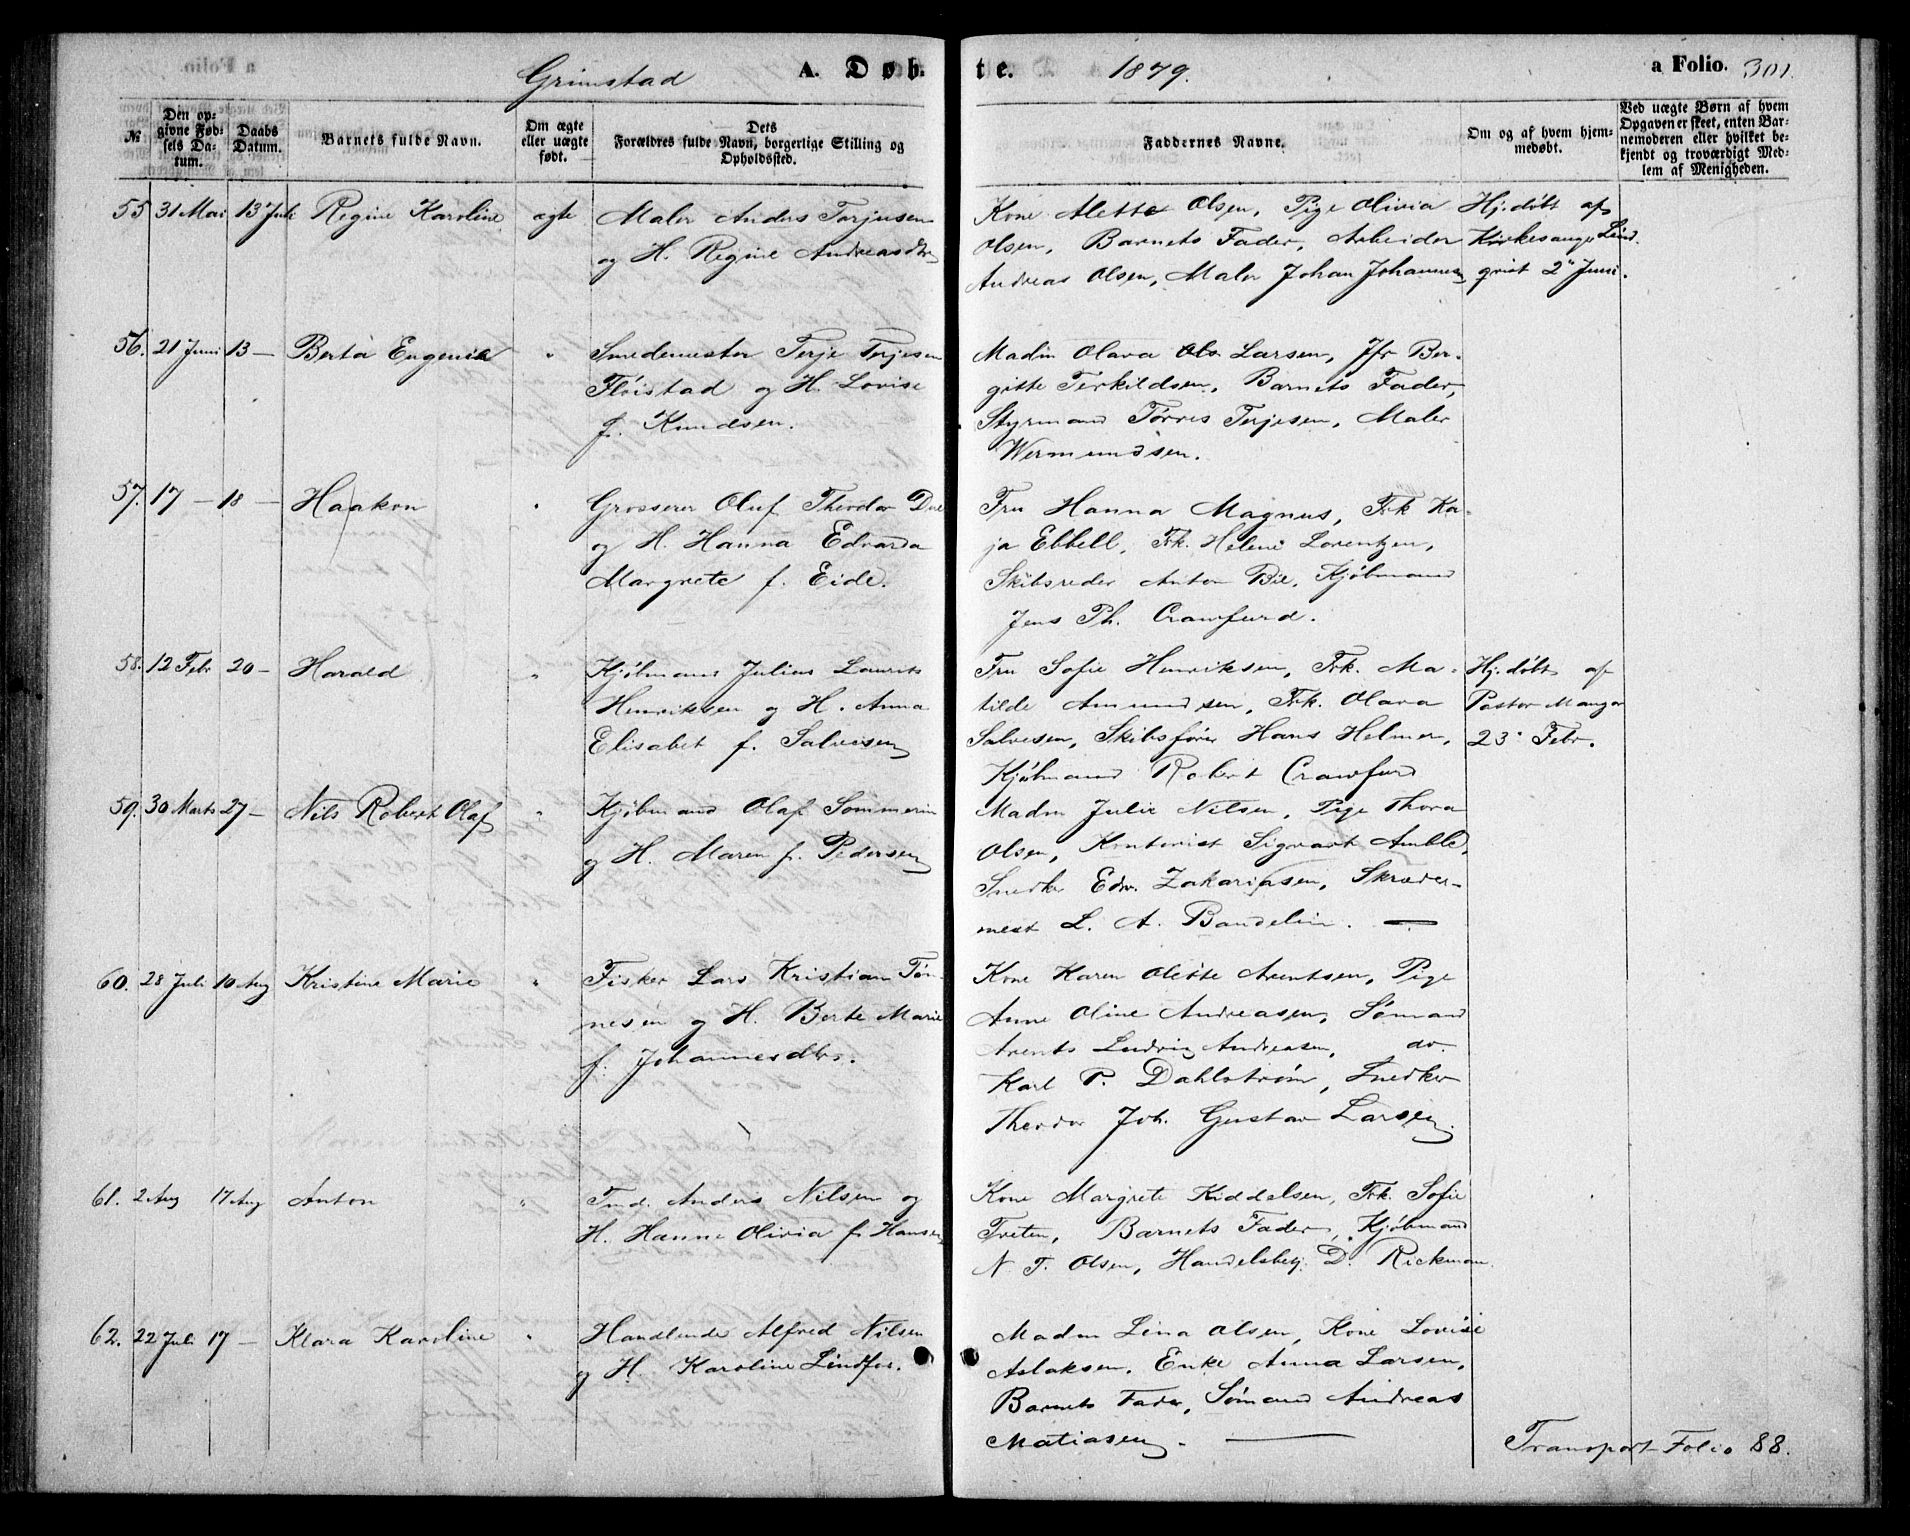 Grimstad A. Døb-
te. 1879. a Folio. 301.
№ Den opgivne Fødsels Datum. Daabs Datum. Barnets fulde Navn. Om ægte eller uægte født. Dets Forældres fulde Navn, borgerlige Stilling og Opholdssted. Faddernes Navne. Om og af hvem hjemmedøbt. Ved uægte Børn af hvem Opgaven er skeet, enten Barnemoderen eller hvilket bekjendt og troværdigt Medlem af Menigheden.
55 31 Mai 13 Juli Regine Karoline ægte Maler Anders Torjusen
og H. Regine Andreasdtr
Kone Alette Olsen, Pige Olivia
Olsen, Barnets Fader, Arbeider
Andreas Olsen, Maler Johan Johannesen
Hj. døbt af
Kirkesanger Lind-
qvist 2 Juni.
56. 21 Juni 13 — Berta Eugenie " Smedemester Terje Terjesen
Fløistad og H. Lovise
f. Knudsen.
Madm Olava Larsen, Jfr Ber-
gitte Terkildsen, Barnets Fader,
Styrmand Tørres Terjesen, Maler
Wermundsen.
57. 17 — 18 — Haakon " Grosserer Oluf Theodor Due
og H. Hanna Edvarda
Margrete f. Eide.
Fru Hanna Magnus, Frk Ka-
ja Ebbell, Frk. Helene Lorentzen,
Skibsreder Anton Bie, Kjøbmand
Jens Ph. Crawfurd.
58. 12 Febr 20 — Harald " Kjøbmand Julius Laurits
Henriksen og H. Anna
Elisabet f. Salvesen
Fru Sofie Henriksen, Frk. Ma-
tilde Amundsen, Frk. Olava
Salvesen, Skibsfører Hans Helmer,
Kjøbmand Robert Crawfurd
Hj. døbt af
Pastor Mangor
23 Febr.
59. 30 Marts 27 — Nils Robert Olaf " Kjøbmand Olaf Sommerin
og H. Maren f. Pedersen
Madm Julie Nilsen, Pige Thora
Olsen, Kontorist Sigvart Amble,
Snedker Edv. Zakariasen, Skræder-
mest L. A. Bandelin. —
60. 28 Juli 10 Aug Kristine Marie " Fisker Lars Kristian Tøn-
nesen og H. Berte Marie
f. Johannesdtr.
Kone Karen Olette Arentsen, Pige
Anne Oline Andreasen, Sømand
Arents Ludvig Andreasen, do.
Karl P. Dahlstrøm, Snedker
Theodor Joh. Gustav Larsen.
61. 2 Aug 17 Aug Anton " Tmd. Anders Nilsen og
H. Hanne Olivia f. Hansen
Kone Margrete Kiddelsen, Frk. Sofie
Treten, Barnets Fader, Kjøbmand
N. T. Olsen, Handelsbetj. D. Rickman.
62. 22 Juli 17 — Klara Karoline " Handlende Alfred Nilsen
og H. Karoline Lindfor.
Madm Lina Olsen, Kone Lovise
Aslaksen, Enke Anna Larsen,
Barnets Fader, Sømand Andreas
Matiasen. —
Transport Folio 88.